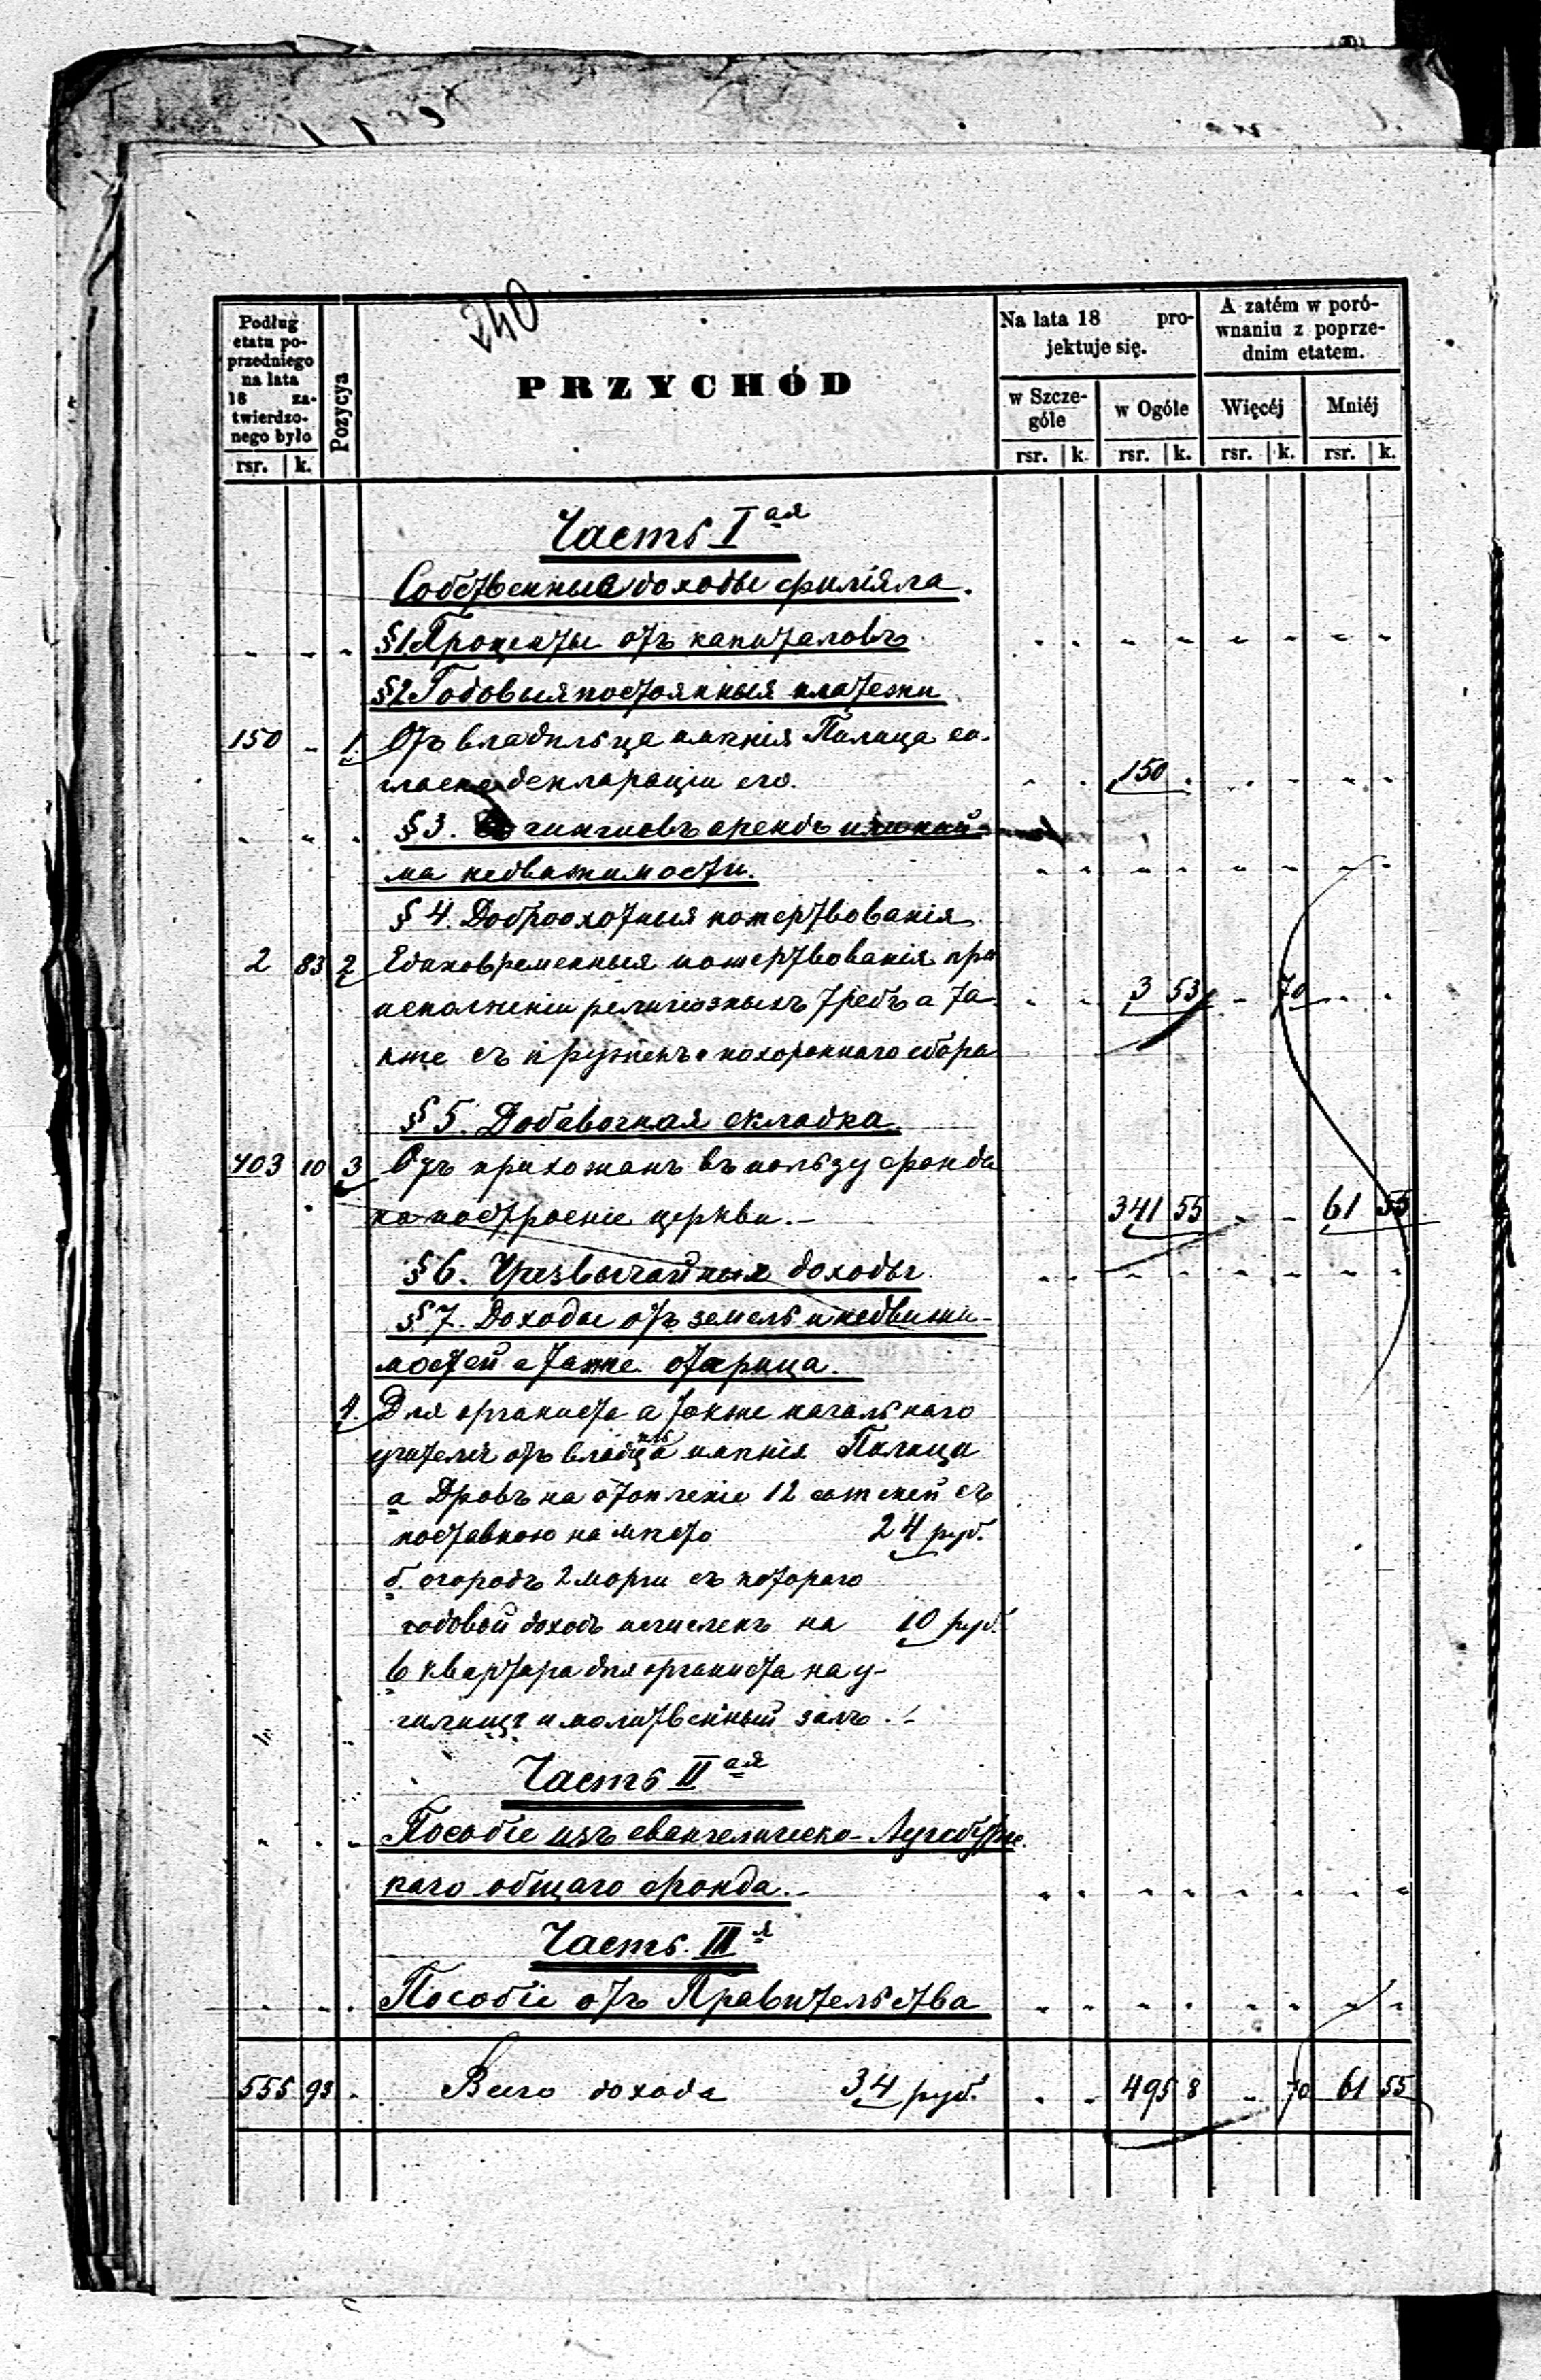 240
Podług etatu poprzedniego na lata 18 zatwierdzonego było
Pozycya
PRZYCHÓD
Na lata 18 projektuje się.
A zatém w porównaniu z poprzednim etatem.
w Szczególe
w Ogóle
Więcéj
Mniéj
rsr. k. rsr. k. rsr. k. rsr. k. rsr. k.
Часть Iая
Собственные доходы филіяла.
§ 1 Проценты отъ капиталовъ
§ 2 Годовыя постоянныя платежи
150 - 1. Отъ владѣльца имѣнія Пилица со-
гласно декларации его. 150
§ 3. чиншовъ арендъ и най-
ма недвижимости.
§ 4. Доброохотныя пожертвованія
2 83 2 Единовременныя пожертвованія при
исполненіи религіозныхъ требъ а та 3 53 - 70
кже съ кружекъ и похороннаго сбора
§ 5. Добавочная складка
403 10 3 Отъ прихожанъ въ пользу фонда
на построеніе церкви. - 341 55 - - 61 55
§ 6. Чрезвычайныя доходы
§ 7. Доходы отъ земель и недвижи-
мостей а также
4. Для органиста а также начальнаго
учителя отъ владѣльца имѣнія Пилица
а Дровъ на отопленіе 12 сажней съ
поставкою на мѣсто 24 руб.
б. огородъ 2 морги съ котораго
годовой доходъ исчисленъ на 10 руб.
в квартира для органиста на у-
чилище и молитвенный залъ. -
Часть IIая
Пособіе изъ евангелическо-Аугсбургс
каго общаго фонда. -
Часть IIIя
Пособіе отъ Правительства
555 93 - Всего дохода 34 руб. - - 495 8 - 70 61 55